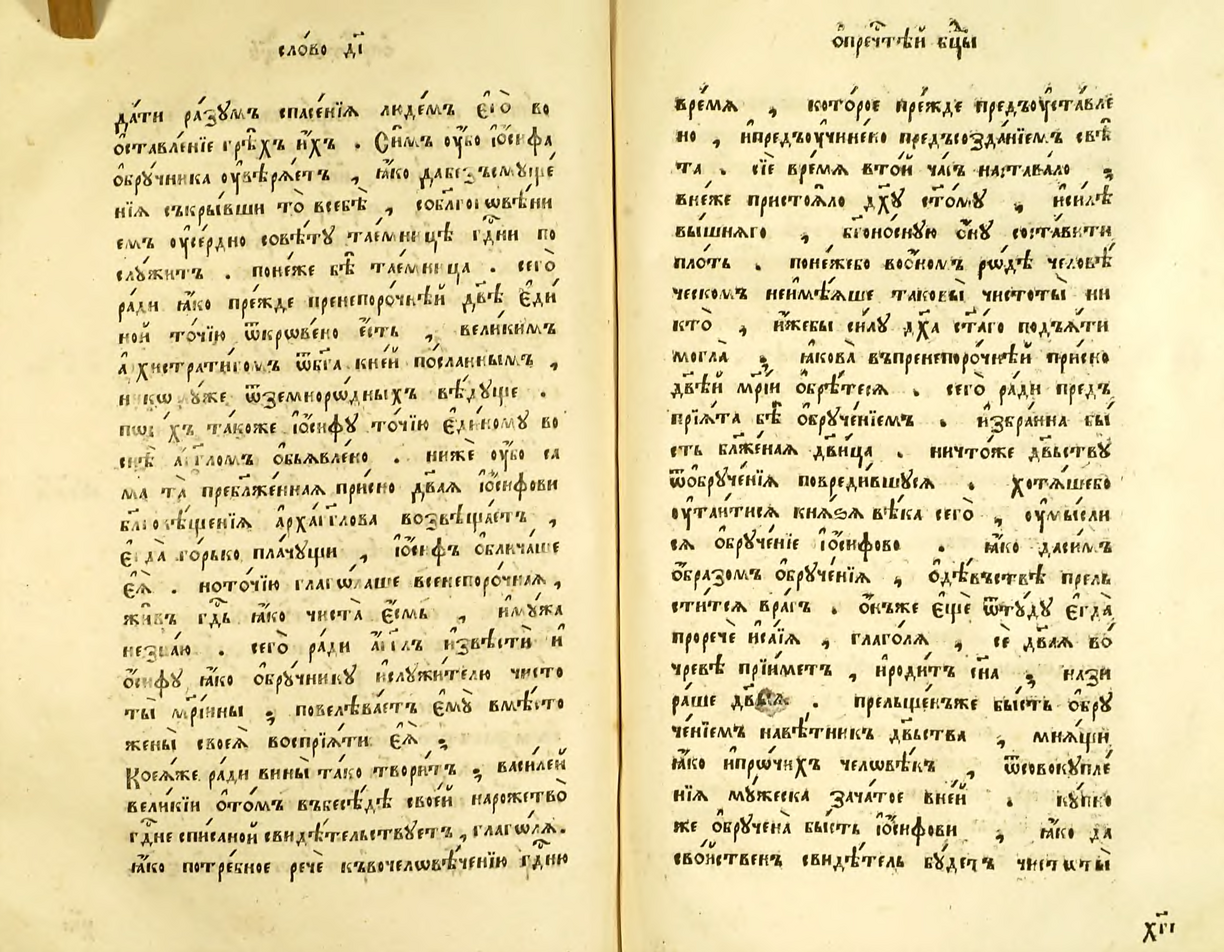 сло́во д҃і
да́ти ра́зꙋмъ спасе́нїѧ люде́мъ є҆гѡ̀ во
ѡ҆ставле́нїе грѣ̑хъ и҆́хъ . Си́мъ оу҆́бо і҆ѡ́сифа
ѡ҆брꙋ́чника оу҆вѣрѧ́етъ , ꙗ҆́кѡ дабезъсмꙋще
нїѧ съкры́вши то̀ всебѣ̀ , соблагоговѣ́ни
емъ оу҆се́рдно совѣ́тꙋ та́емницѣ гдⷭ҇ни по
слꙋ́житъ . поне́же бѣ̀ та́емница . сегѡ̀
ра́ди ꙗ҆́кѡ пре́жде пренепоро́чнѣй дв҃ѣ є҆ди́
ной то́чїю ѿкрове́но є҆́сть , вели́кимъ
а҆рхистрати́гомъ ѿбг҃а кне́й по́сланнымъ ,
ѿземноро́дныхъ вѣ́дꙋще .
та́коже і҆ѡ́сифꙋ то́чїю є҆ди́номꙋ во
снѣ̀ а҆́гг҃ломъ ѡ҆бьѧ́влено . нижѐ оу҆́бо са
ма та̀ преблаже́ннаѧ при́сно дв҃аѧ і҆ѡ́сифови
бл҃говѣ́щенїѧ а҆рха́гг҃лова возвѣща́етъ ,
є҆гда̀ го́рько пла́чꙋщи , і҆ѡ́сифъ ѡ҆блича́ше
є҆ѧ̀ . ното́чїю глаго́лаше всенепоро́чнаѧ ,
жи́въ гдⷭ҇ь ꙗ҆́кѡ чиста̀ є҆́смь , и҆мꙋ́жа
незна́ю . сегѡ̀ ра́ди а҆́гг҃лъ и҆звѣсти́ й
ѡ҆́сифꙋ ꙗ҆́кѡ ѡ҆брꙋ́чникꙋ и҆слꙋжи́телю чисто
ты̀ мр҃і́ины ; повелѣва́етъ є҆мꙋ̀ вмѣ́сто
жены̀ своеѧ̀ воспрїѧ́ти є҆ѧ̀ ;
Коеѧ́же ра́ди вины̀ та́кѡ твори́тъ ; васи́лей
вели́кїи ѡ҆то́мъ въбесѣ́дѣ свое́й нарожество̀
гдⷭ҇не спи́саной свидѣ́тельствꙋетъ , глаго́лѧ .
ꙗ҆́кѡ потре́бное речѐ къвочеловѣ́ченїю гдⷭ҇ню
ѡ҆пречⷭ҇тѣй бцⷣы
вре́мѧ , кото́рое пре́жде предъоу҆ста́вле
но , и҆предъоу҆чине́ко предъсозда́нїемъ свѣ́
та . сїѐ вре́мѧ вто́й ча́съ настава́ло ;
вне́же пристоѧ́ло дх҃ꙋ ст҃о́мꙋ , и҆си́лѣ
вы́шнѧгѡ , бг҃оно́снꙋю ѻ҆́нꙋ соста́вити
пло́ть . поне́жебо восно́мъ ро́дѣ человѣ́
ческомъ неимѣ́ѧше таковы̀ чистоты̀ ни
кто̀ , и҆́жебы си́лꙋ дх҃а ст҃а́го подъѧ́ти
могла̀ ; ꙗ҆кова̀ въпренепоро́чнѣй при́сно
дв҃ѣй мр҃і́и ѡ҆брѣ́тесѧ . сегѡ̀ ра́ди предъ
прїѧ́та бѣ̀ ѡ҆брꙋче́нїемъ . и҆збра́нна бы́
сть бл҃же́наѧ дв҃и́ца . ничто́же дв҃ьствꙋ
ѿѡбрꙋче́нїѧ повреди́вшꙋсѧ . хотѧ́щебо
оу҆таи́тисѧ кнѧ́ѕѧ вѣ́ка сегѡ̀ , оу҆мы́сли
сѧ ѡ҆брꙋче́нїе і҆ѡ́сифово . ꙗ҆́кѡ даси́мъ
ѻ҆́бразомъ ѡ҆брꙋче́нїѧ , ѡ҆дѣ́въствѣ прель
сти́тсѧ вра́гъ . ѡ҆нъ́же є҆щѐ ѿтꙋ́дꙋ є҆гда̀
проречѐ и҆са́їѧ , глаго́лѧ , сѐ дв҃аѧ во
чре́вѣ прїи́метъ , и҆роди́тъ сн҃а ; нази
ра́ше . прельще́нъже бы́сть ѡ҆брꙋ
че́нїемъ навѣ́тникъ дв҃ьства ; мнѧ́щи
ꙗ҆́кѡ и҆про́чихъ человѣ́къ , ѿсовокꙋпле́
нїѧ мꙋ́жеска зача́тое вне́й . кꙋ́пно
же ѡ҆брꙋче́на бы́сть і҆ѡ́сифови ; ꙗ҆́кѡ да
сво́йственъ свидѣ́тель бꙋ́детъ чистоты̀